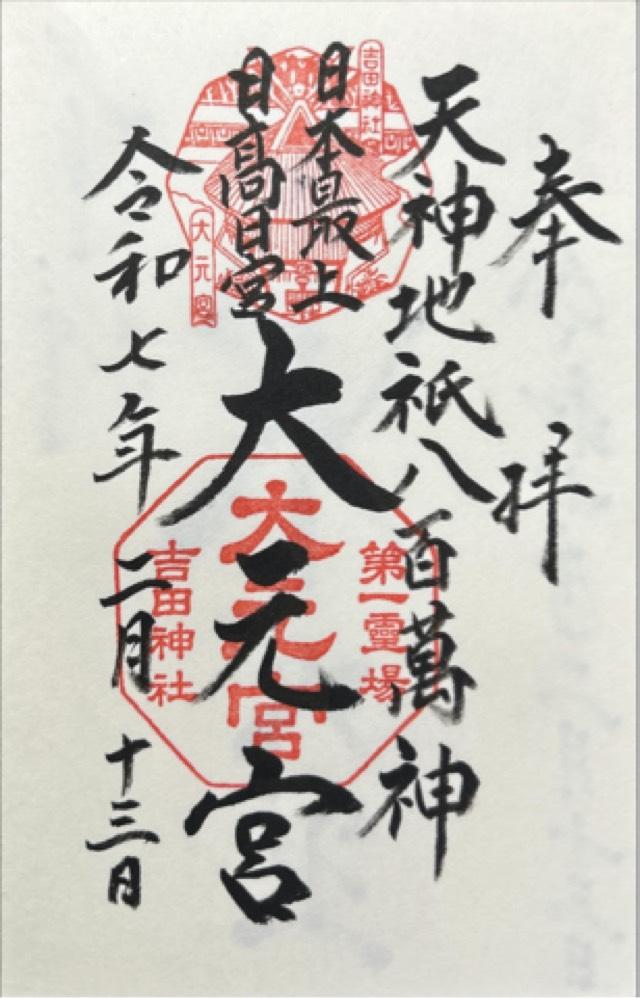 奉拝
天神地祇八百萬神
日本最上
日高日宮
大元宮
令和七年二月十三日
吉田神社
大元宮
第一霊場
大元宮
吉田神社